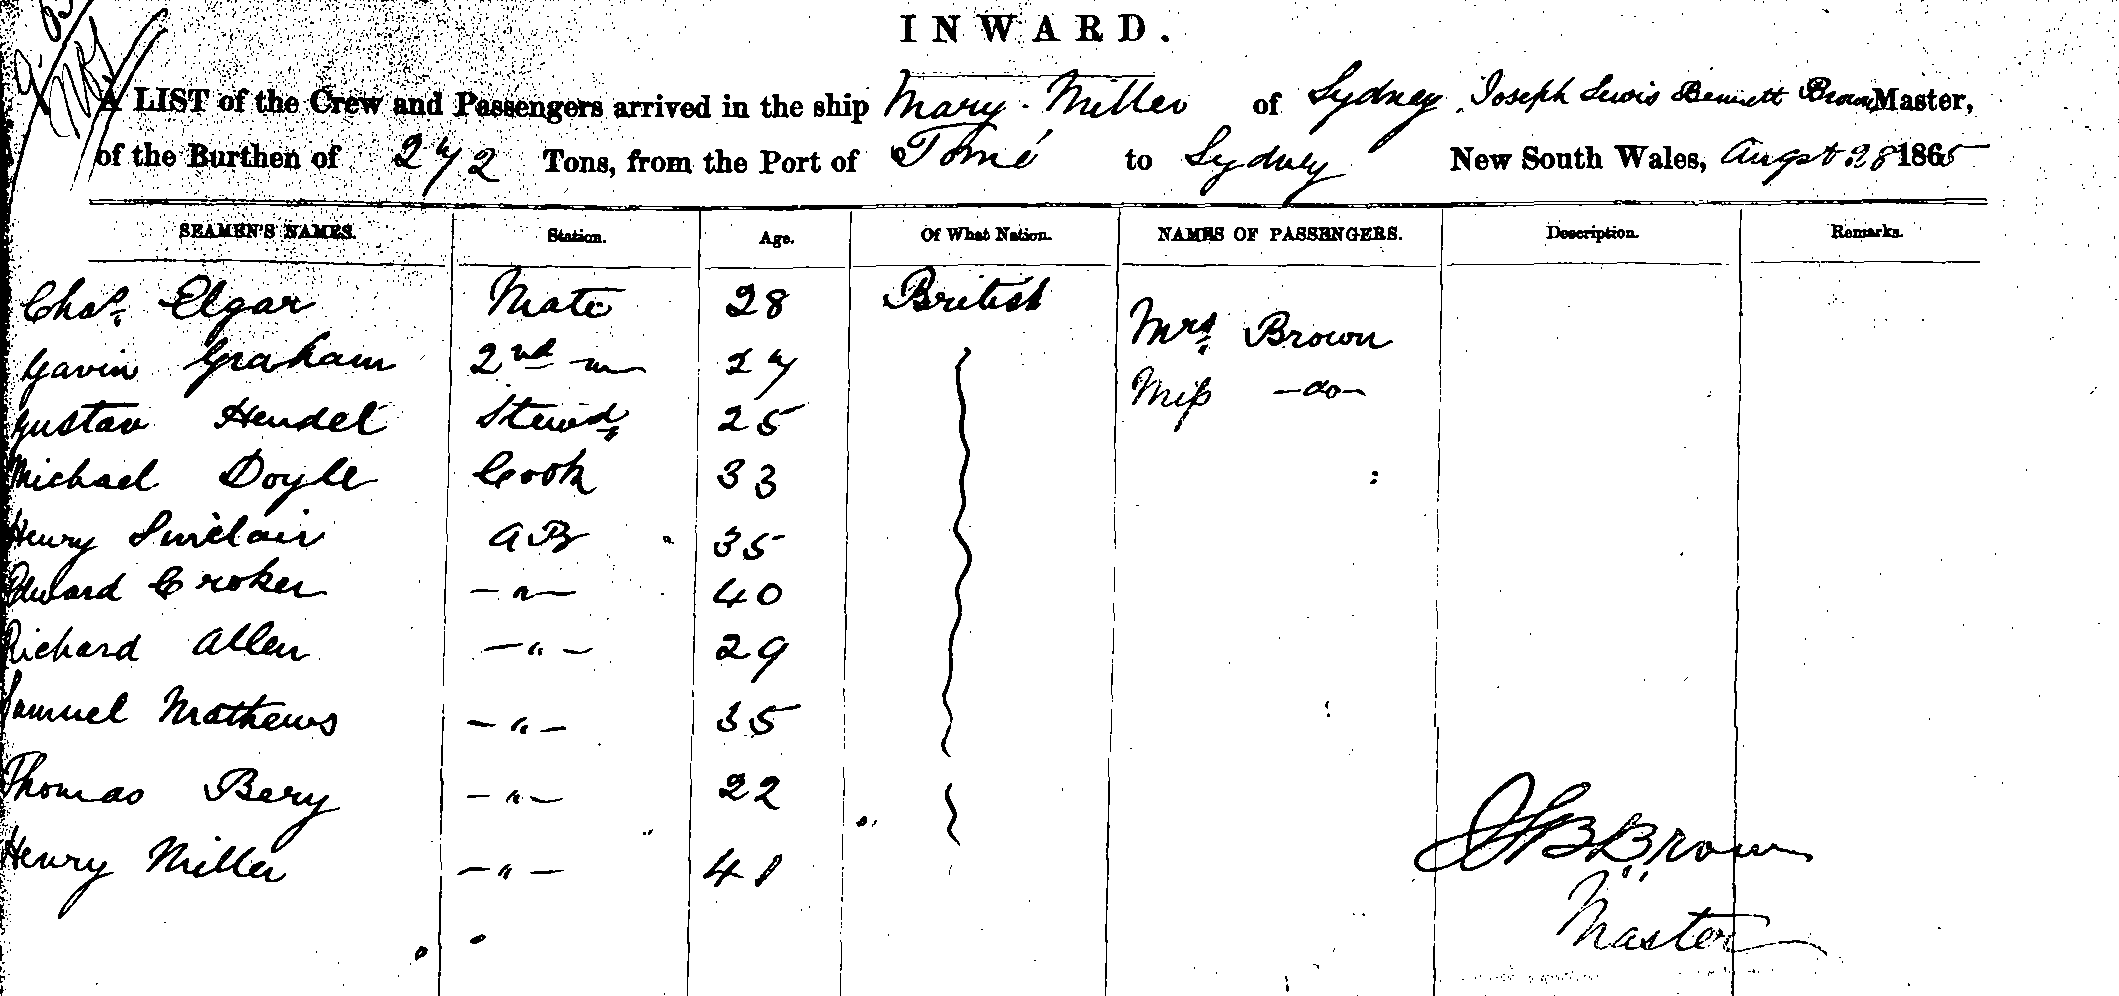 INWARD.
A LIST of the Crew and Passengers arrived in the ship Mary Miller of Sydney, Joseph Lewis Bennett Brown Master,
of the Burthen of 272 Tons, from the Port of Tomé to Sydney New South Wales, Augst 28 1865
SEAMEN'S NAMES. Station. Age. Of What Nation. NAMES OF PASSENGERS. Description. Remarks.
Chas. Elgar Mate 28 British Mrs. Brown
Gavin Graham 2nd -"- 27 Miss -do-
Gustav Hendel Stewd. 25
Michael Doyle Cook 33
Henry Sinclair AB 35
Edward Croker -"- 40
Richard Allen -"- 29
Samuel Mathews -"- 35
Thomas Bery -"- 22
Henry Miller -"- 41
JLB Brown
Master